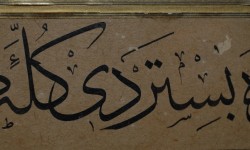 بستردی کله